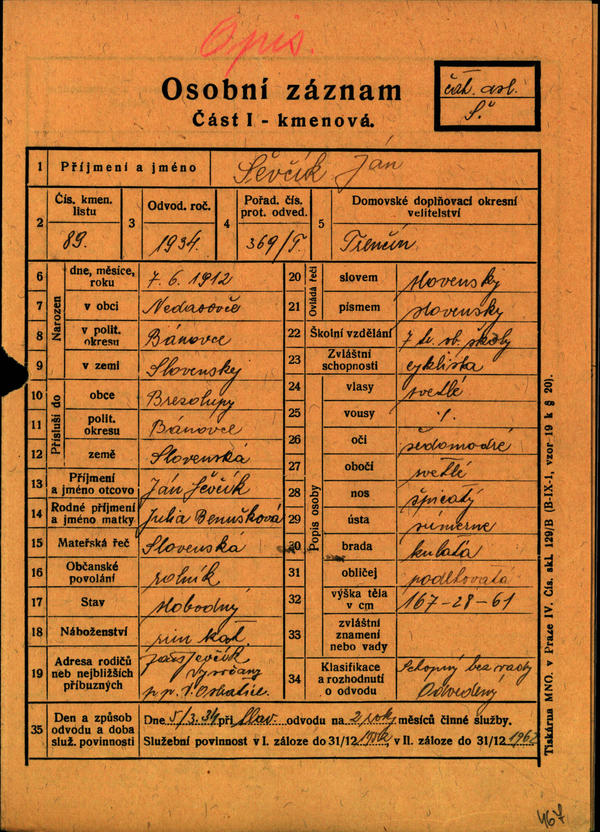 Opis.
Osobní záznam
Část I - kmenová.
Š.
1 Příjmení a jméno Ševčík Ján
2 Čís. kmen. listu 89.
3 Odvod. roč. 1934.
4 Pořad. čís. prot. odved. 369/T.
5 Domovské doplňovací okresní velitelství Trenčín
Narozen
6 dne, měsíce, roku 7. 6. 1912
7 v obci Nedasovce
8 v polit. okresu Bánovce
9 v zemi Slovenskej
Přísluší do
10 obce Brezolupy
11 polit. okresu Bánovce
12 země Slovenská
13 Příjmení a jméno otcovo Ján Ševčík
14 Rodné příjmení a jméno matky Julia Benušková
15 Mateřská řeč Slovenská
16 Občanské povolání rolník
17 Stav slobodný
18 Náboženství rim. kat.
19 Adresa rodičů neb nejbližších příbuzných Ševčík
p. p.
Ovládá řeči
20 slovem slovensky
21 písmem slovensky
22 Školní vzdělání 7 školy
23 Zvláštní schopnosti cyklista
Popis osoby
24 vlasy svetlé
25 vousy ·/.
26 oči šedomodré
27 obočí svetlé
28 nos špicatý
29 ústa súmerné
30 brada kulatá
31 obličej podlhovatá
32 výška těla v cm 167-28-61
33 zvláštní znamení nebo vady
34 Klasifikace a rozhodnutí o odvodu Schopný bez vady
Odvedený
35 Den a způsob odvodu a doba služ. povinnosti
Dne 5/3. 34 při hlav. odvodu na 2 roky měsíců činné služby.
Služební povinnost v I. záloze do 31/12 v II. záloze do 31/12 1962
Tiskárna MNO. v Praze IV. Čís. skl. 129/B (B-IX-1, vzor 19 k § 20).
467